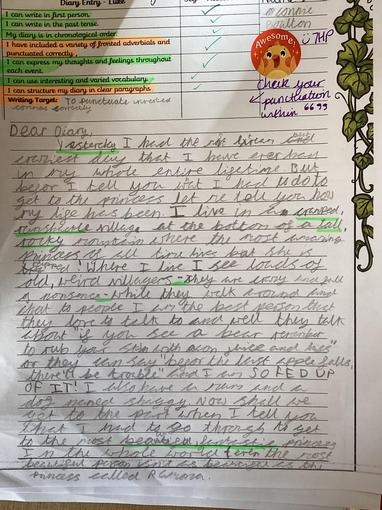 Diary Entry - Luke
I can write in first person.
I can write in the past tense.
My diary is in chronological order.
I have included a variety of fronted adverbials and
punctuated correctly.
I can express my thoughts and feelings throughout
each event.
I can use interesting and varied vocabulary.
I can structure my diary in clear paragraphs.
Writing Target: To punctuate inverted
commas correctly
Awesome!
7HP
check your
punctuation
within 66 99
Dear Diary,
Yesterday I had the
craziest day that I have ever had
in my whole entire lifetime But
befor I tell you wat I had to do to
get to the princess let me tell you how
my life has been. I live in a
village at the bottom of a tall
rocky mountain where the most amazing
princess of all time lives but she is
Where I live I see loads of
old, weird villagers - they are crazy and full
a nonsence - while they walk around and
chat to people I am the best person that
they love to talk to and well they talk
about if you see a bear remember
to rub your
or they can say "befor the last apple falls,
there'll be trouble" and I am SO FED UP
OF IT! I also have a mum and a
dog named shaggy. Now shall we
get to the part when I tell you
that I had to go through to get
to the most beautiful, fantastic princess
I in the whole world (even the most
beautiful person isn't as beautiful as the
princess called